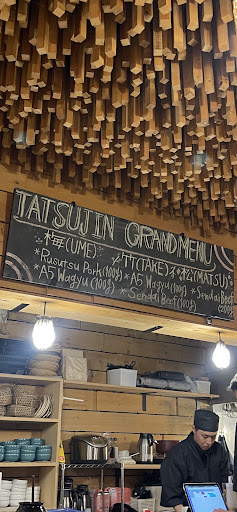 TATSUJIN GRAND MENU
梅(UME) 竹(TAKE) 松(MATSU)
*Rusutsu Pork(100g) *A5 Wagyu(100g) *A5 Wagyu(100g) *Sendai Beef
*A5 Wagyu(100g) *Sendai Beef(100g) (200g)